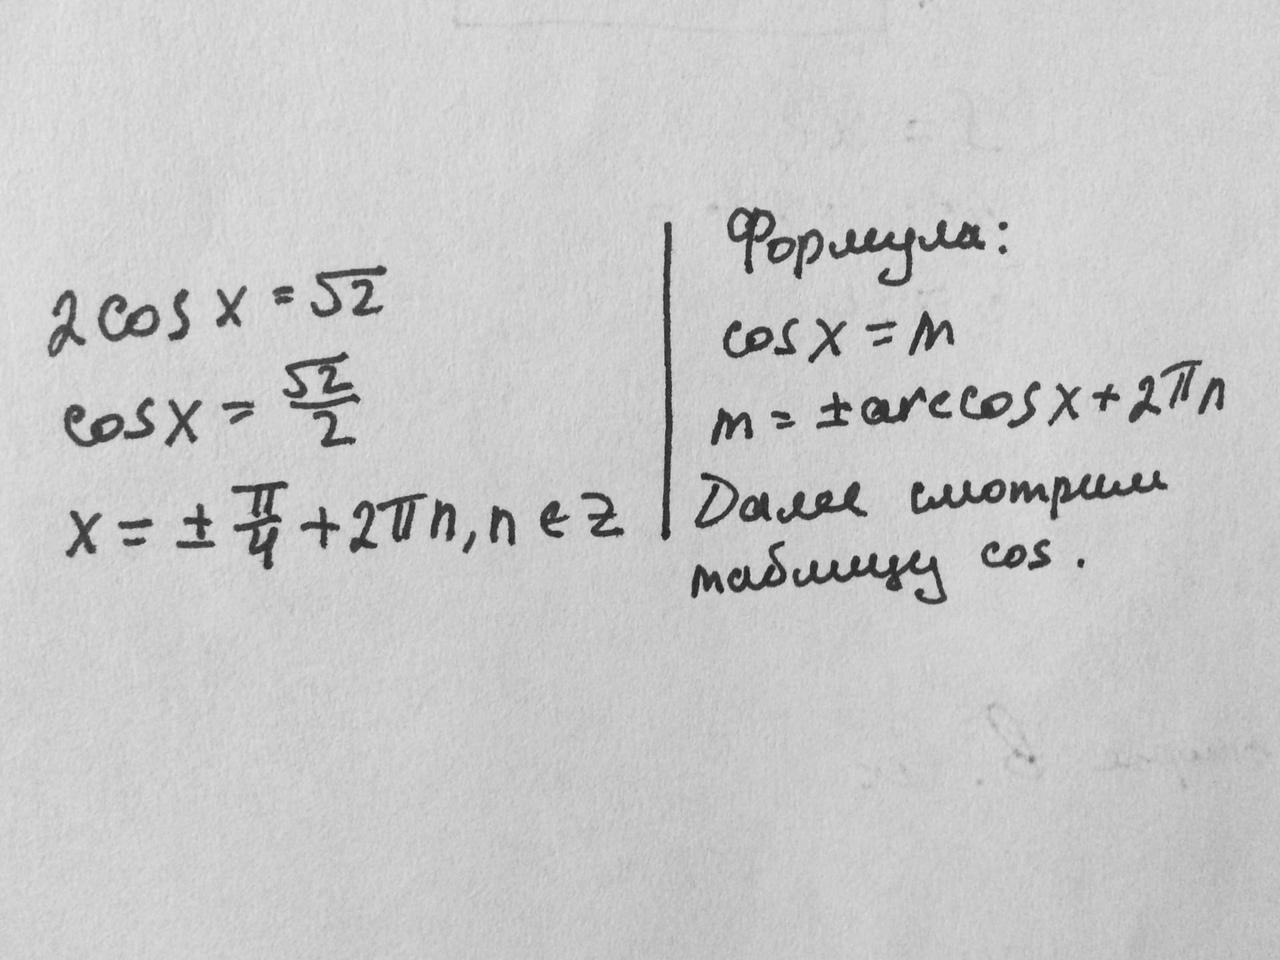 2cos x = √2
cos x = √2/2
x = ± π/4 + 2πn, n ∈ Z
Формула:
cos x = m
m = ±arccos x + 2πn
Далее смотрим
таблицу cos.